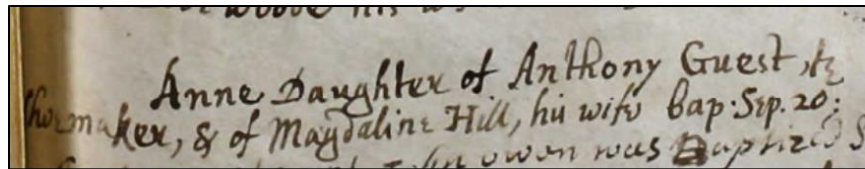 his
Anne Daughter of Anthony Guest,
shoemaker, & of Magdaline Hill, his wife bap: Sep. 20:
owen was Baptized S